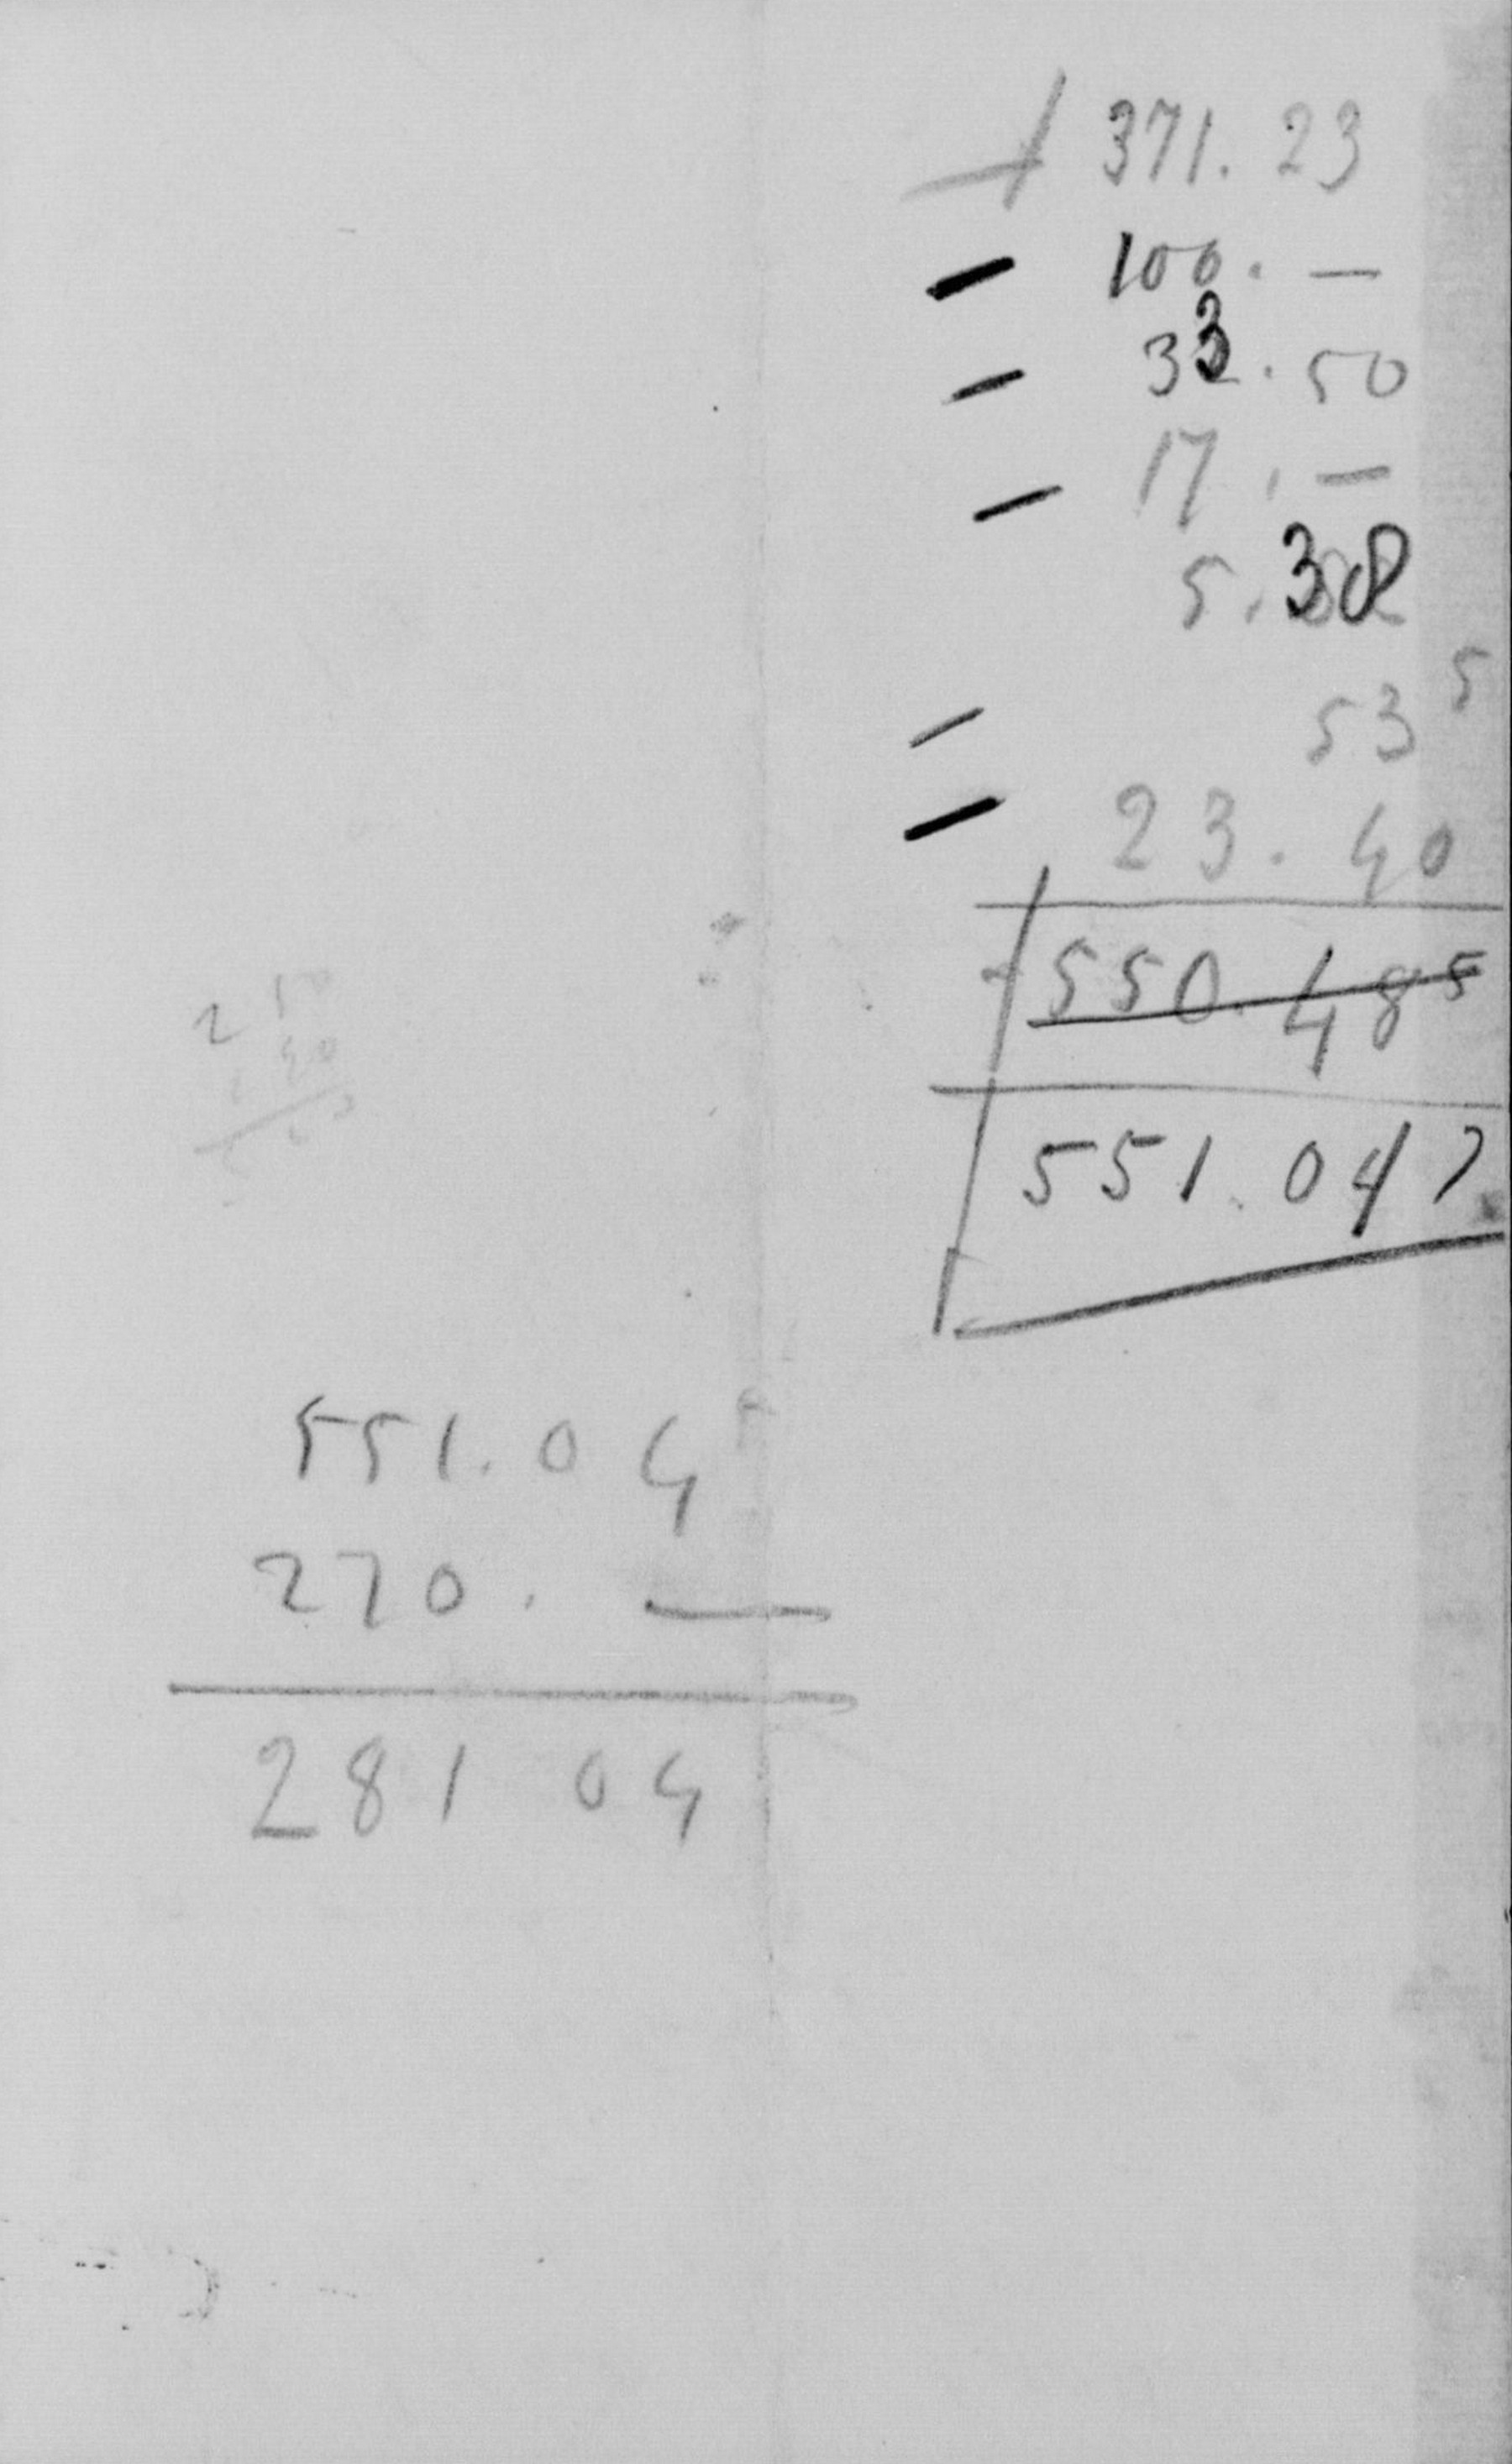 371.23
100.—
33.50
17.—
5.38
53⁵
23.40
550.48⁵
551.047
551.04⁵
270.—
281 04